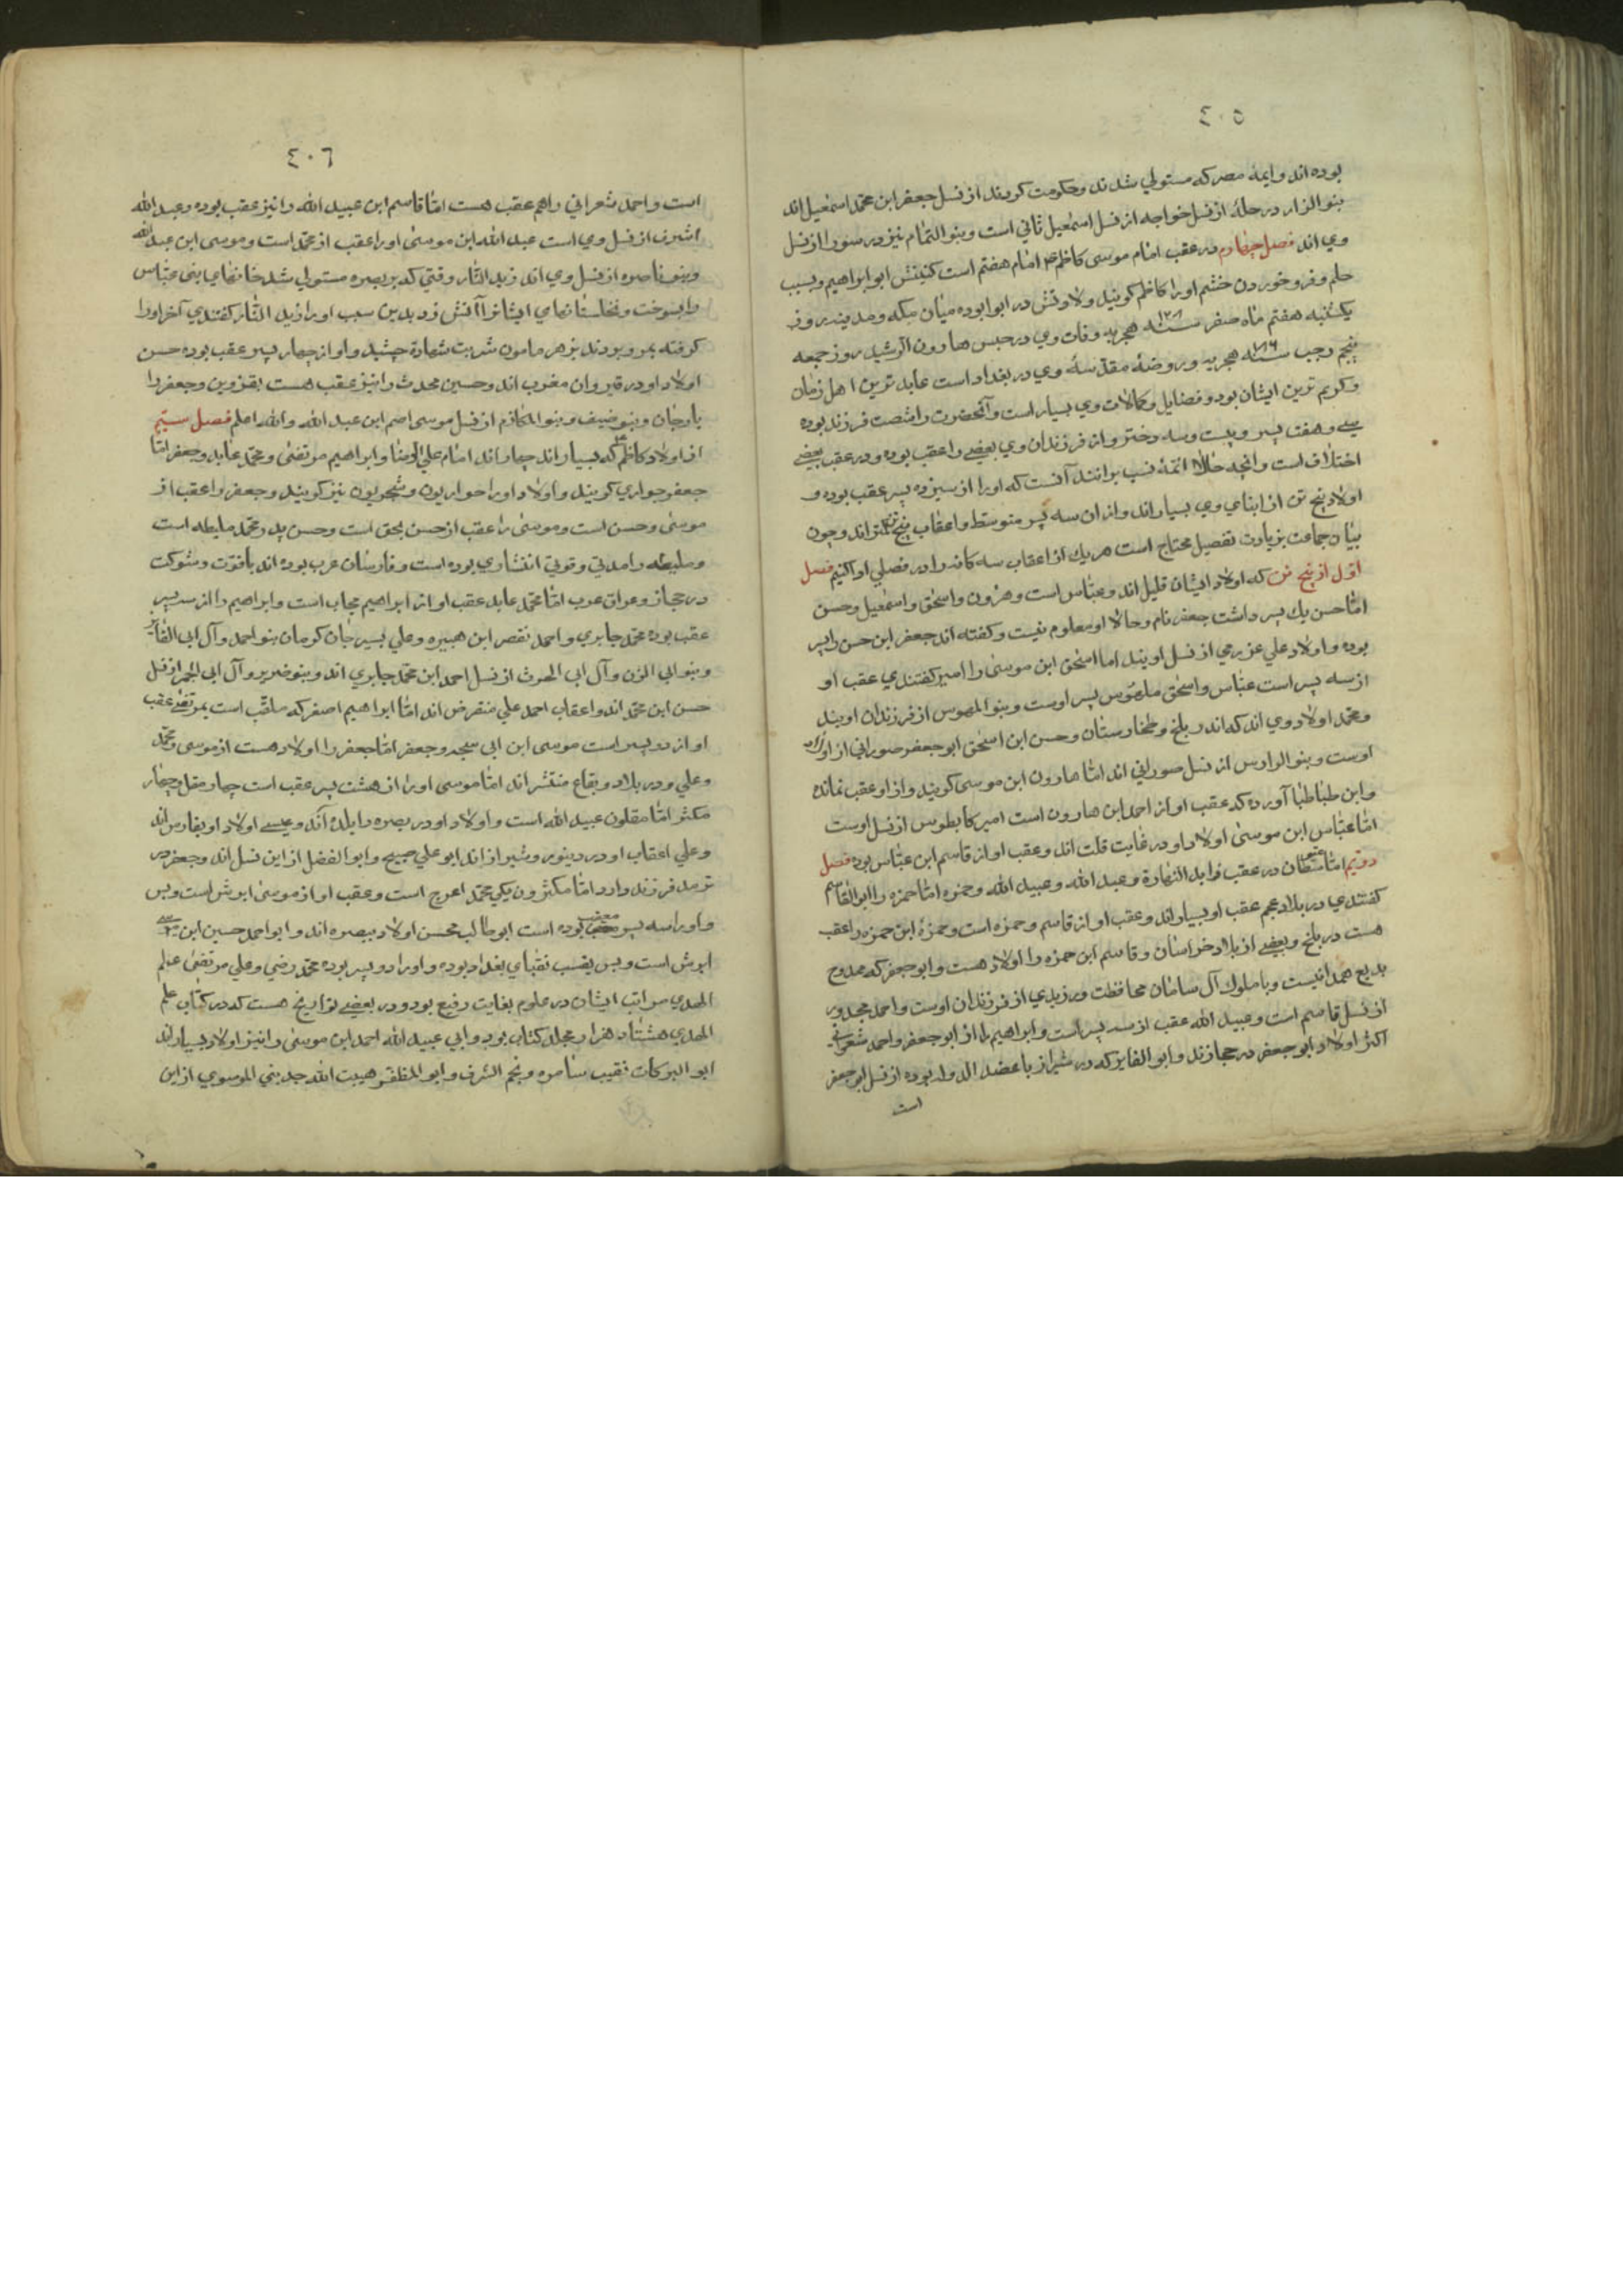 ٤٠٥
بوده اند وایمهٔ مصر که مستولي شدند وحکومت کردند از نسل جعفر ابن محمّد اسمٰعیل اند
بنو الزار در حله از نسل خواجه از نسل اسمٰعیل ثاني است وبنو التمّام نیز در سورا از نسل
وي اند فصل چهارم در عقب امام موسی کاظم امام هفتم است کنیتش ابو ابراهیم وبسبب
حلم وفرو خوردن خشم اورا کاظم کویند ولادتش در ابوا بوده میان مکه ومدینه روز
یکشنبه هفتم ماه صفر سنه ١٢٨ هجریه وفات وي در حبس هارون الرشید روز جمعه
پنجم رجب سنه هجریه وروضهٔ مقدّسهٔ وي در بغداد است عابد ترین اهل زمان
وکریم ترین ایشان بود وفضایل وکمالات وي بسیار است وآنحضرت را شصت فرزند بوده
سي وهفت پسر وبیست وسه دختر واز فرزندان وي بعضي را عقب بوده ودر عقب بعضي
اختلاف است وانچه حالا ائمهٔ نسب برانند آنست که اورا از سیزده پسر عقب بوده و
اولاد پنج تن از ابناي وي بسیار اند واز ان سه پسر متوسّط واعقاب پنج کمتر اند وچون
بیان جماعت بزیادت تفصیل محتاج است هر یك از اعقاب سه کانه را در فصلي ادا کنیم فصل
اوّل از پنج تن که اولاد ایشان قلیل اند وعبّاس است وهرون واسحٰق واسمٰعیل وحسن
امّا حسن یك پسر داشت جعفر نام وحالا او معلوم نیست وکفته اند جعفر ابن حسن را پسر
بوده واولاد علي عزرمي از نسل اویند اما اسحٰق ابن موسیٰ را امیر کفتندي عقب او
از سه پسر است عبّاس واسحٰق ملهوس پسر اوست وبنو الملهوس از فرزندان اویند
ومحمّد اولاد وي اند که اند در بلخ وطخارستان وحسن ابن اسحٰق ابو جعفر صوراني از اولاد
اوست وبنو الوارس از نسل صوراني اند امّا هارون ابن موسی کویند واز او عقب نمانده
وابن طباطبا آورده که عقب او از احمد ابن هارون است امیر کابطوس از نسل اوست
امّا عبّاس ابن موسیٰ اولاد او در غایت قلت اند وعقب او از قاسم ابن عبّاس بوده فصل
دویم امّا در عقب زاید النهارة وعبد الله وعبید الله وحمزه امّا حمزه را ابو القاسم
کفتندي در بلاد عجم عقب او بسیار اند وعقب او از قاسم وحمزه است وحمزهٔ ابن حمزه را عقب
هست در بلخ وبعضي از بلاد خراسان وقاسم ابن حمزه را اولاد هست وابو جعفر که ممدوح
بدیع همدانیست وبا ملوك آل سامان محافظت ورزیدي از فرزندان اوست واحمد مجدور
از نسل قاسم است وعبید الله عقب از سه پسر است وابراهیم را از ابو جعفر واحمد شعراني
اکثر اولاد ابو جعفر در حجازند وابو الفایز که در شیراز با عضد الدوله بوده از نسل ابو جعفر
است
٤٠٦
است واحمد شعراني را هم عقب هست امّا قاسم ابن عبید الله را نیز عقب بوده وعبد الله
اشرف از نسل وي است عبد الله ابن موسیٰ اورا عقب از محمّد است وموسی ابن عبد الله
وبنو ناصره از نسل وي اند زید النّار وقتي که بر بصره مستولي شد خانهاي بني عبّاس
را بسوخت ونخلستانهاي ایشانرا آتش زد بدین سبب اورا زید النّار کفتندي آخر اورا
کرفته بمرو بودند بزهر مامون شربت شهادة چشید واو از چهار پسر عقب بوده حسن
اولاد او در قیروان مغرب اند وحسین محدث را نیز عقب هست بقزوین وجعفر را
بارجان وبنو ضیف وبنو المکارم از نسل موسی اصم ابن عبد الله والله اعلم فصل سیّم
از اولاد کاظم که بسیار اند چهار اند امام علي الرضا وابراهیم مرتضیٰ ومحمّد عابد وجعفر امّا
جعفر حواري کویند واولاد اورا حواریون وشجریون نیز کویند وجعفر را عقب از
موسیٰ وحسن است وموسیٰ را عقب از حسن لحق است وحسن پدر محمّد ملیطه است
وملیطه را مدتي وقوتي انتشاري بوده است وفارسان عرب بوده اند باقوّت وشوکت
در حجاز وعراق عرب امّا محمّد عابد عقب او از ابراهیم مجاب است وابراهیم را از سه پسر
عقب بوده محمّد جابري واحمد بقصر ابن هبیره وعلي بسیرجان کرمان بنو احمد وآل ابي الفایز
وبنو ابي المزن وآل ابي الحرث از نسل احمد ابن محمّد جابري اند وبنو ضریر وآل ابي الحمر از نسل
حسن ابن محمّد اند واعقاب احمد علي منقرض اند امّا ابراهیم اصغر که ملقّب است بمرتضیٰ عقب
او از دو پسر است موسی ابن ابي سبحه وجعفر امّا جعفر را اولاد هست از موسی ومحمّد
وعلي ودر بلاد وبقاع منتشر اند امّا موسی اورا از هشت پسر عقب است چهار مقل وچهار
مکثر امّا مقلون عبید الله است واولاد او در بصره وابله اند وعیسی اولاد او بفارس اند
وعلي اعقاب او در دینور وشیراز اند ابو علي صبیح وابو الفضل از این نسل اند وجعفر در
ترمد فرزند دارد امّا مکثرون یکي محمّد اعرج است وعقب او از موسیٰ ابرش است وبس
واورا سه پسر معقب بوده است ابو طالب محسن اولاد ببصره اند وابو احمد حسین ابن موسی
ابرش است وبس بقسب نقباي بغداد بوده واورا دو پسر بوده محمّد رضي وعلي مرتضیٰ علم
الهدي مراتب ایشان در علوم بغایت رفیع بود ودر بعضي تواریخ هست که در کتاب علم
الهدي هشتاد هزار مجلد کتاب بود وابي عبید الله احمد ابن موسیٰ را نیز اولاد بسیار اند
ابو البرکات نقیب سامره ونجم الشرف وابو المظفر هیبت الله جد بني الموسوي از این